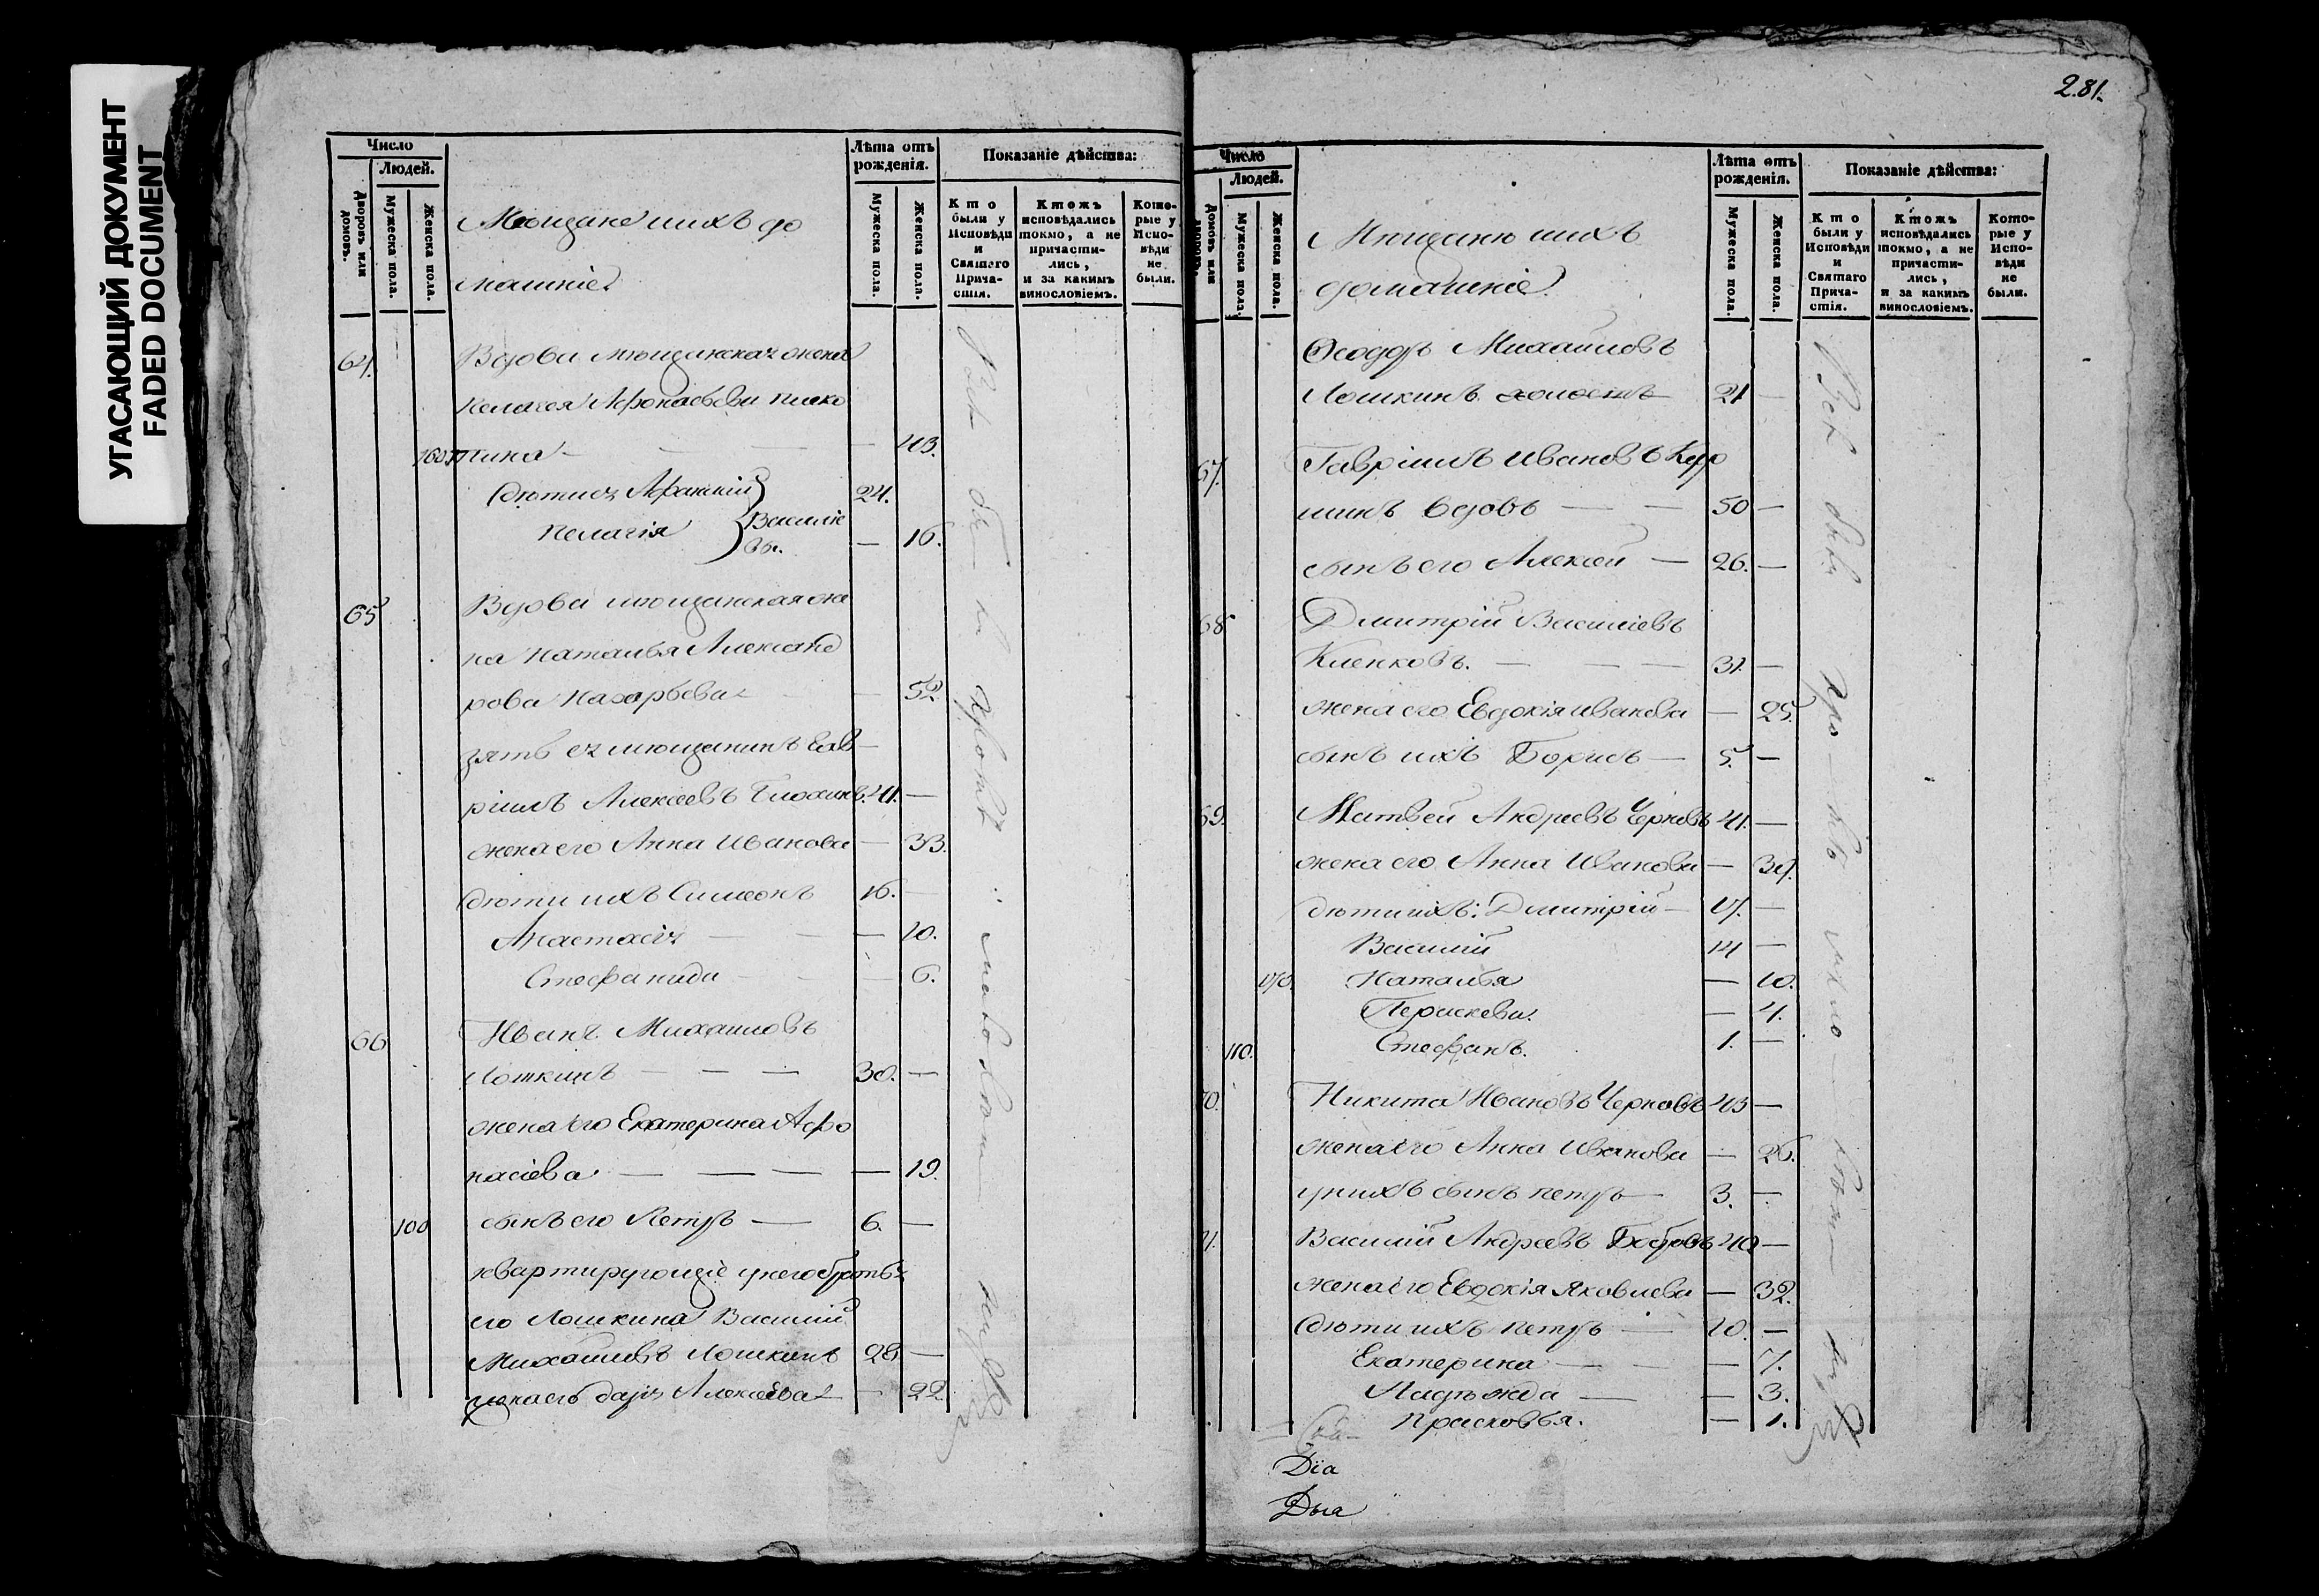 УГАСАЮЩИЙ ДОКУМЕНТ
FADED DOCUMENT
Число
Людей.
Дворовъ или домовъ.
Мужеска пола.
Женска пола.
Мѣщане ихъ до
машніе
Лѣта отъ рожденія.
Мужеска пола.
Женска пола.
Показаніе дѣйства:
Кто были у Исповѣди и Святаго Причастія.
Ктожъ исповѣдались токмо, а не причастились, и за какимъ винословіемъ.
Которые у Исповѣди не были.
64. Вдова мѣщанская жена
Пелагея Афонасьева
160. — 43.
дѣти ея Афанасій 24.
Пелагія Василье
вы. — 16.
65 Вдова мѣщанская же
на Наталья Александ
рова Назарьева — 52
зять ея мѣщанинъ Гав
ріилъ Алексеевъ Блохинъ 41. —
жена его Анна Иванова — 33.
дѣти ихъ Симеонъ 16. —
Анастасія — 10.
Стефанида — 6.
66 Иванъ Михаиловъ
Лошкинъ 30. —
жена его Екатерина Афо
насіева — 19.
100 сынъ его Петръ 6. —
квартирующіе у него братья
его Лошкина Василій
Михаиловъ Лошкинъ 28. —
жена его Алексеева — 22.
281.
Число
Людей.
Домовъ или
Мужеска пола.
Женска пола.
Мѣщане ихъ
домашніе
Лѣта отъ рожденія.
Мужеска пола.
Женска пола.
Показаніе дѣйства:
Кто были у Исповѣди и Святаго Причастія.
Ктожъ исповѣдались токмо, а не причастились, и за какимъ винословіемъ.
Которые у Исповѣди не были.
Ѳеодоръ Михаиловъ
Лошкинъ холостъ 21 —
67. Гавріилъ Ивановъ
вдовъ 50 —
сынъ его Алексей 26. —
68 Дмитрій Василіевъ
Кленковъ. 31. —
жена его Евдокія Иванова — 25.
сынъ ихъ Борисъ 5. —
69. Матвей Андреевъ Черновъ 41. —
жена его Анна Иванова — 39.
дѣти ихъ: Дмитрій 17. —
Василій 14 —
170. Наталья — 10.
Параскева. — 4.
110. Стефанъ. 1. —
70. Никита Ивановъ Черновъ 43 —
жена его Анна Иванова — 26.
у нихъ сынъ Петръ 3. —
71. Василій Андреевъ Бобровъ 40 —
жена его Евдокія Яковлева — 32.
дѣти ихъ Петръ 10. —
Екатерина — 7.
Надѣжда — 3.
Прасковья. — 1.
Діа